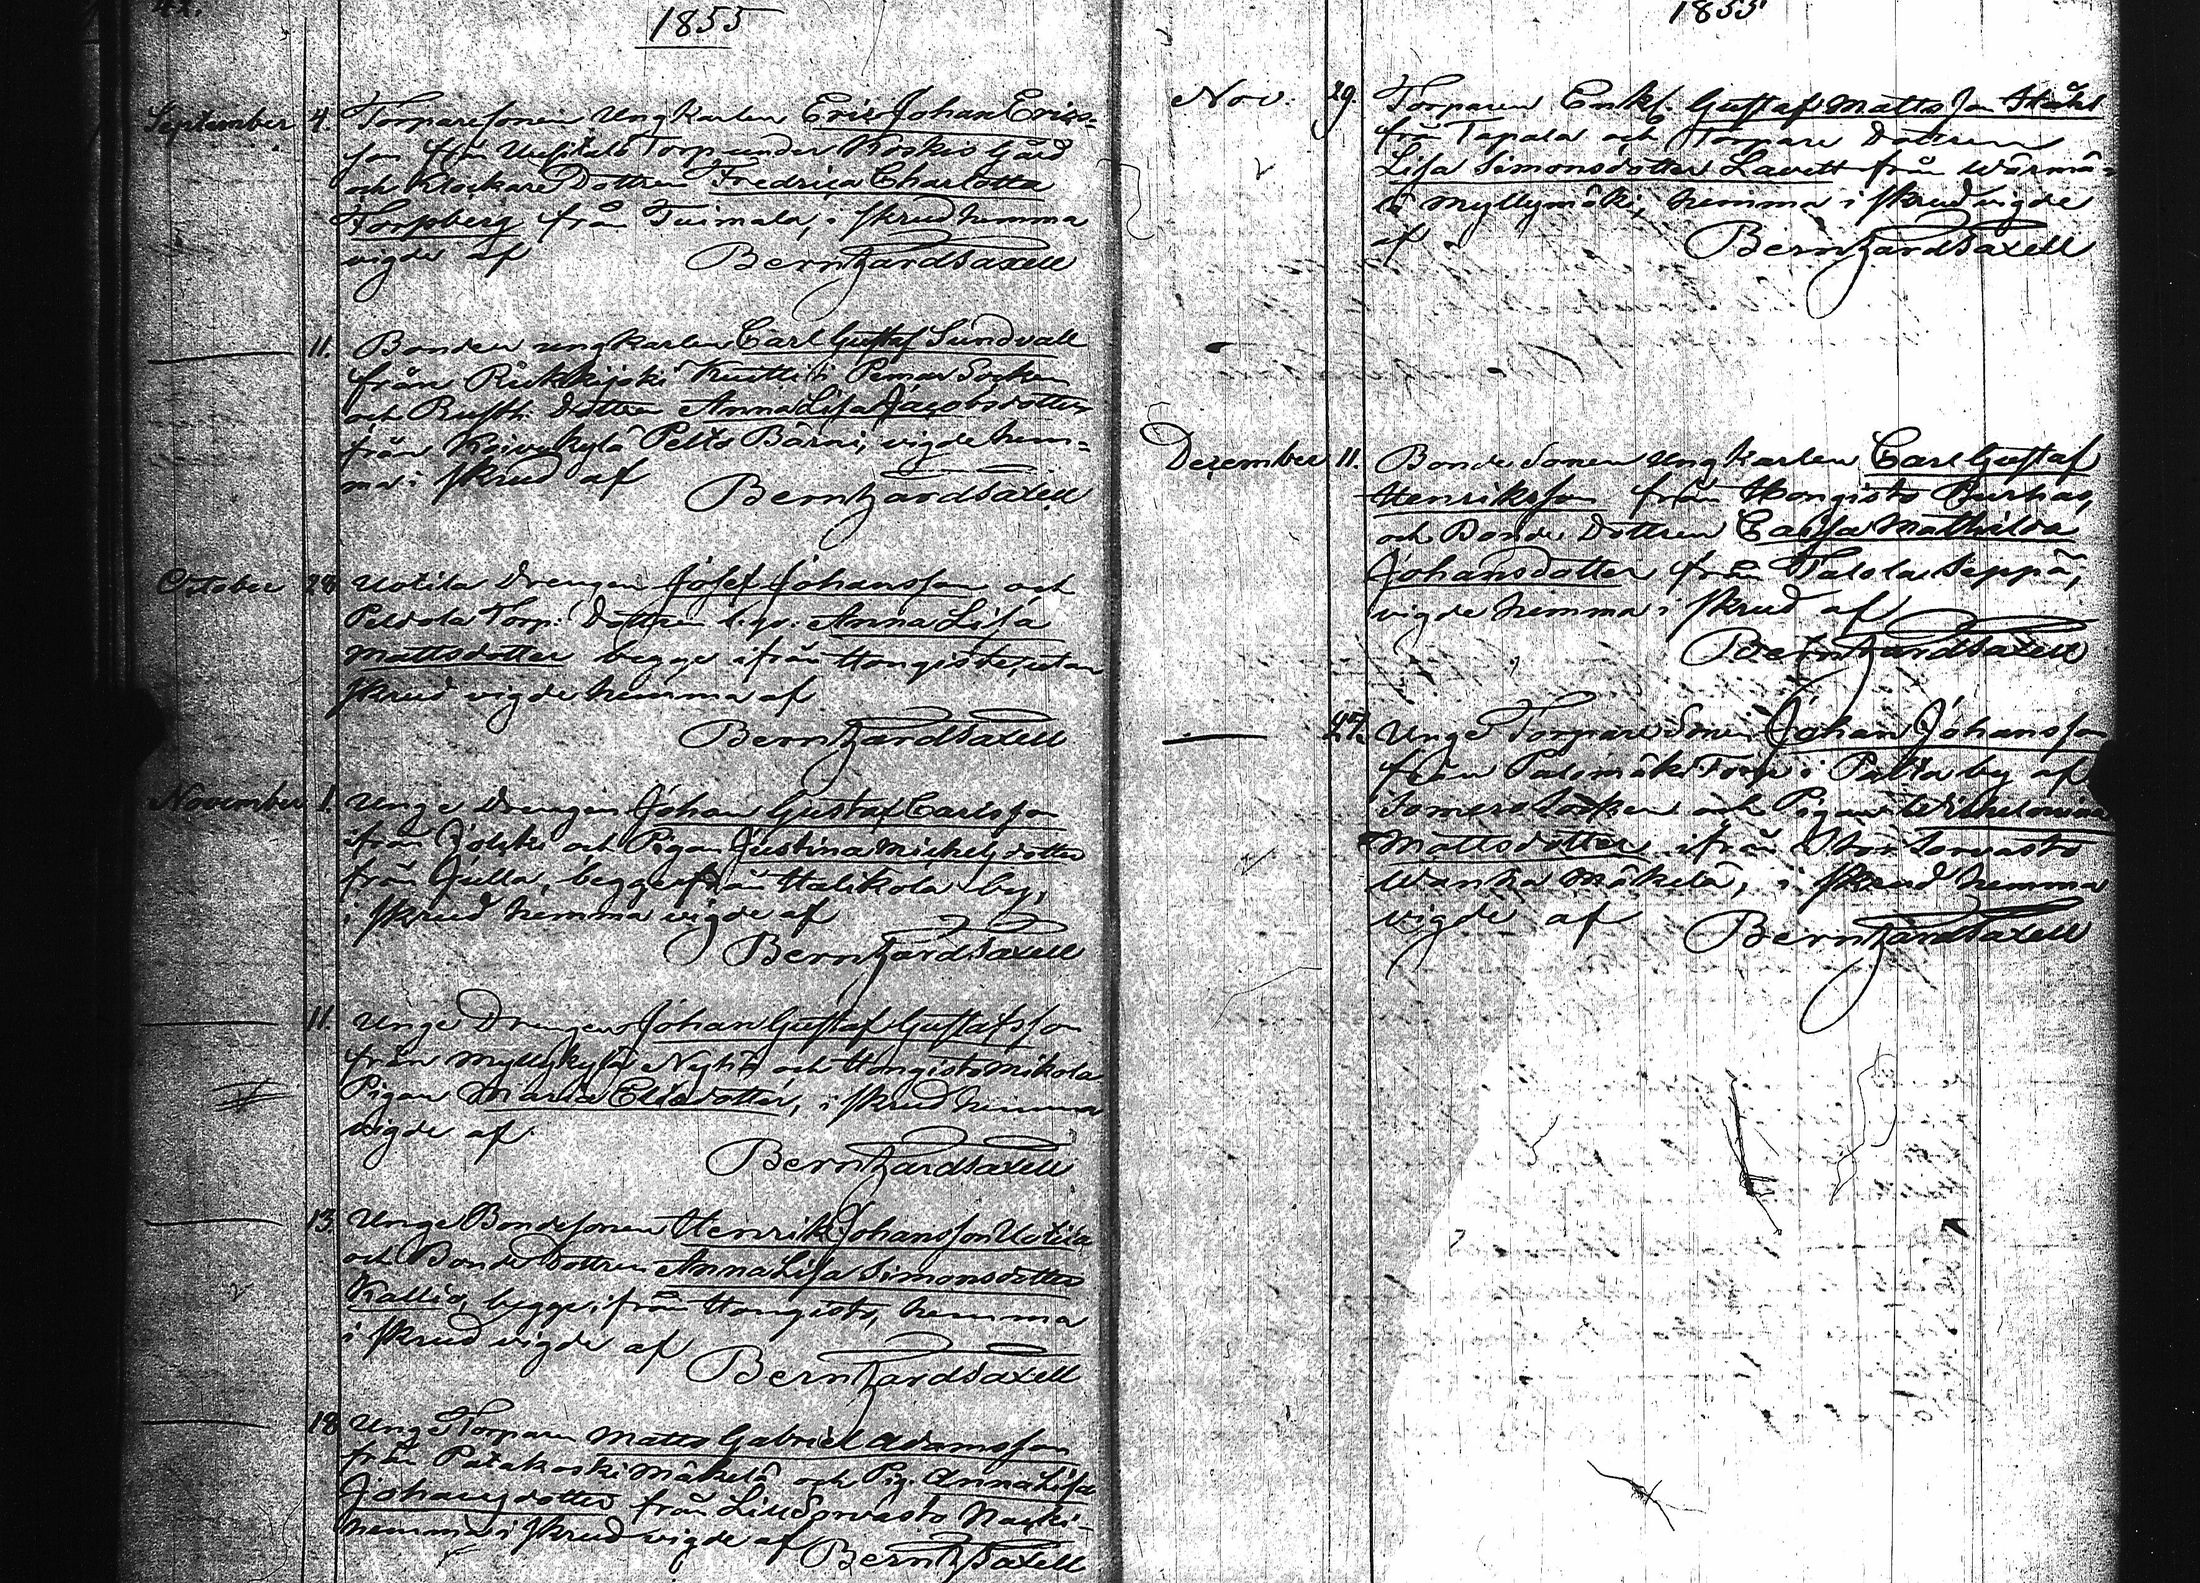 42.
1855
September 4. Torparesonen Ungkarlen Eric Johan Erics-
son från Torp under Koskis Gård
och Klockare Dottren Fredrica Charlotta
Forsberg från Tuimala, i skrud hemma
vigde af Berntzard Saxell
11. Bonden ungkarlen Carl Gustaf Sundvall
från Kuttila Pemar Socken
och Rusth. Dottren Anna Lisa Jacobsdotter
från Koivukylä Pelto Bärni, vigde hem-
ma i skrud af Berntzard Saxell
October 28 Uotila Drengen Josef Johansson och
Peldola Torp. Dottren Anna Lisa
Mattsdotter begge ifrån Hongisto, utan
skrud vigde hemma af
Berntzard Saxell
November 1. Unge Drengen Johan Gustaf Carlsson
ifrån och Pigan Justina Michelsdotter
från Julla, begge från Halikola by,
i skrud hemma vigde af
Berntzard Saxell
11. Unge Drengen Johan Gustaf Gustafsson
från Myllykylä och Hongisto Mikola
Pigan Maria Eliædotter, i skrud hemma
vigde af
Berntzard Saxell
13. Unge Bondesonen Henrik Johansson Uotila
och Bonde Dottren Anna Lisa Simonsdotter
Kallio, begge ifrån Hongisto, hemma
i skrud vigde af
Berntzard Saxell
18 Unge Torparen Matts Gabriel Adamsson
från Patakoski Mäkelä och Pig. Anna Lisa
Johansdotter från Liudorvasto
hemma i skrud vigde af Berntz Saxell
1855
Nov. 29. Torparen Enkl. Gustaf Matts son Ståhl
från Tapala och Torpare Dottren
Lisa Simonsdotter Lavett från Wärmä-
lä Myllymäki, hemma i skrud vigde
af Berntzard Saxell
Dezember 11. Bonde Sonen Ungkarlen Carl Gustaf
Henriksson från Hongisto Purhas,
och Bonde Dottren Caisa Mathilda
Johansdotter från Talola Seppä,
vigde hemma i skrud af
Berntzard Saxell
27. Unge Torpare Sonen Johan Johansson
från Palomäki Torp i Palta by af
Somero Socken och Pigan Wilhelmina
Mattsdotter ifrån Sorvasto
Wanha Mäkelä, i skrud hemma
vigde af Berntzard Saxell